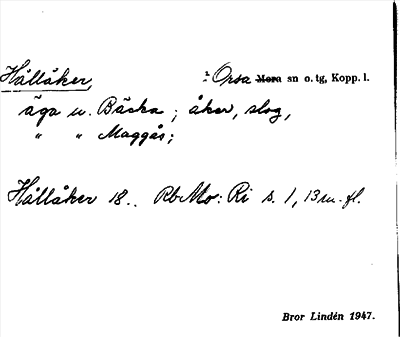 Hållåker, Orsa Mora sn o. tg, Kopp. l.
äga u. Bäcka ; åker, slog,
" " Maggås;
Hållåker 18.. Rb Mo: Ri s. 1, 13 m. fl.
Bror Lindén 1947.